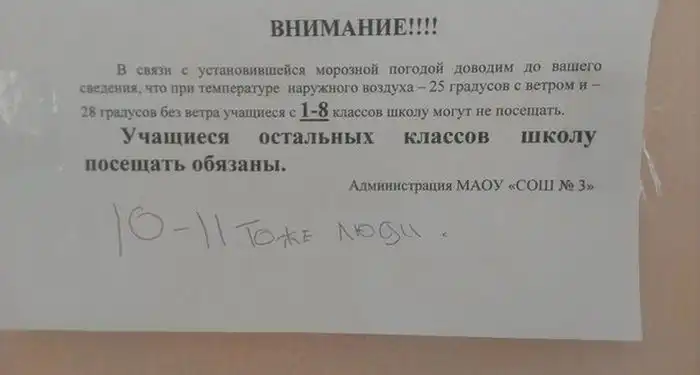 ВНИМАНИЕ!!!!
В связи с установившейся морозной погодой доводим до вашего
сведения, что при температуре наружного воздуха – 25 градусов с ветром и –
28 градусов без ветра учащиеся с 1-8 классов школу могут не посещать.
Учащиеся остальных классов школу
посещать обязаны.
Администрация МАОУ «СОШ № 3»
10-11 тоже люди.